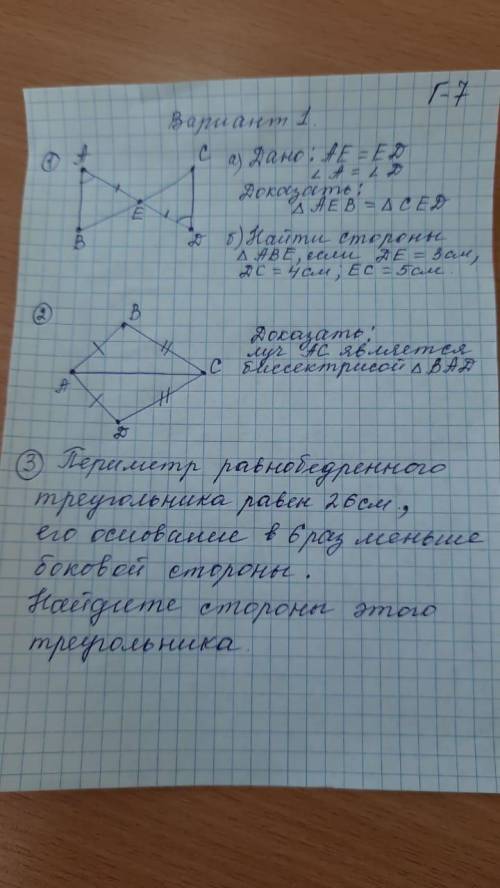 Г-7
Вариант 1.
1
A
C
E
B
D
а) Дано: AE = ED
∠A = ∠D
Доказать:
△AEB = △CED
б) Найти стороны
△ABE, если DE = 3см,
DC = 4см; EC = 5см.
2
B
A
C
D
Доказать:
луч AC является
биссектрисой △BAD
3 Периметр равнобедренного
треугольника равен 26см.,
его основание в 6 раз меньше
боковой стороны.
Найдите стороны этого
треугольника.